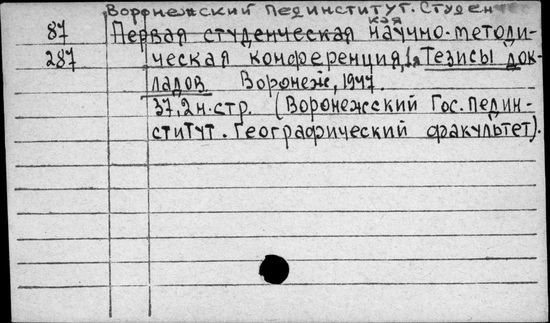 Воронежский Пединститут. Студен
ская
87 Первая студенческая научно-методи-
287 ческая конференция, 1я Тезисы док-
ладов Воронеж, 1947.
37,2н.стр. (Воронежский Гос. Педин-
ститут. Географический факультет).